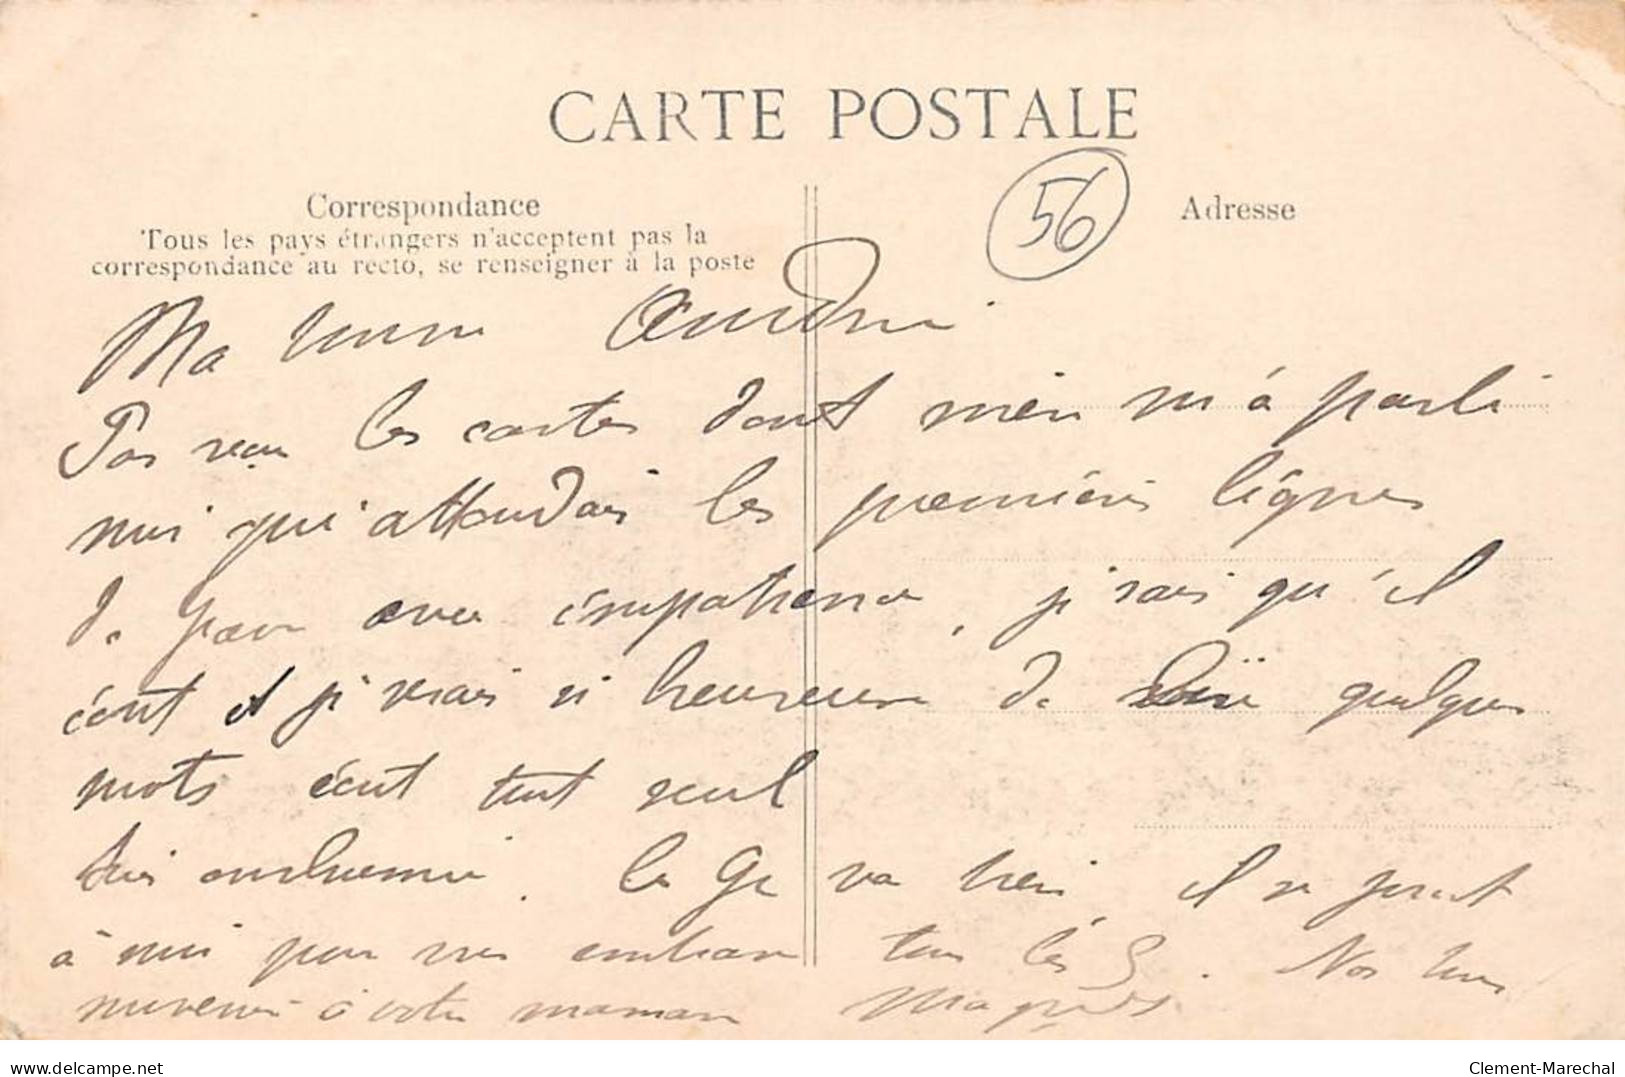 CARTE POSTALE
56
Correspondance
Adresse
Tous les pays étrangers n'acceptent pas la
correspondance au recto, se renseigner à la poste
Ma
Pas reçu les cartes dont m'a parlé
moi qui attendais les premières lignes
de avec impatience, je sais qu'il
écrit et je serais si heureuse de quelques
mots écrit tout seul
va bien, il se joint
à moi pour vous embrasser tous les 3. Nos bons
souvenirs à votre maman
www.delcampe.net
Clement-Marechal